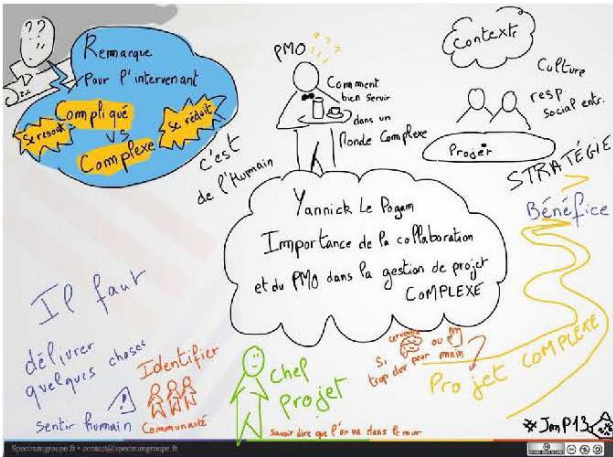 ??
Remarque
Pour l'intervenant
Compliqué
vs
Complexe
Se resout
Se réduit
PMO
Comment
bien servir
dans un
Monde Complexe
c'est
de l'Humain
Contexte
Culture
resp
Social entr.
Projet
STRATÉGIE
Bénéfice
Yannick Le Pogam
Importance de la collaboration
et du PMO dans la gestion de projet
COMPLEXE
Il faut
délivrer
quelques choses
sentir humain
Identifier
Communauté
Chef
Projet
Savoir dire que l'on va dans le mur
cerveau
ou PM
Si
trop dur pour main ?
Projet COMPLEXE
#JMP13
Spectrumgroupe.fr • contact@spectrumgroupe.fr